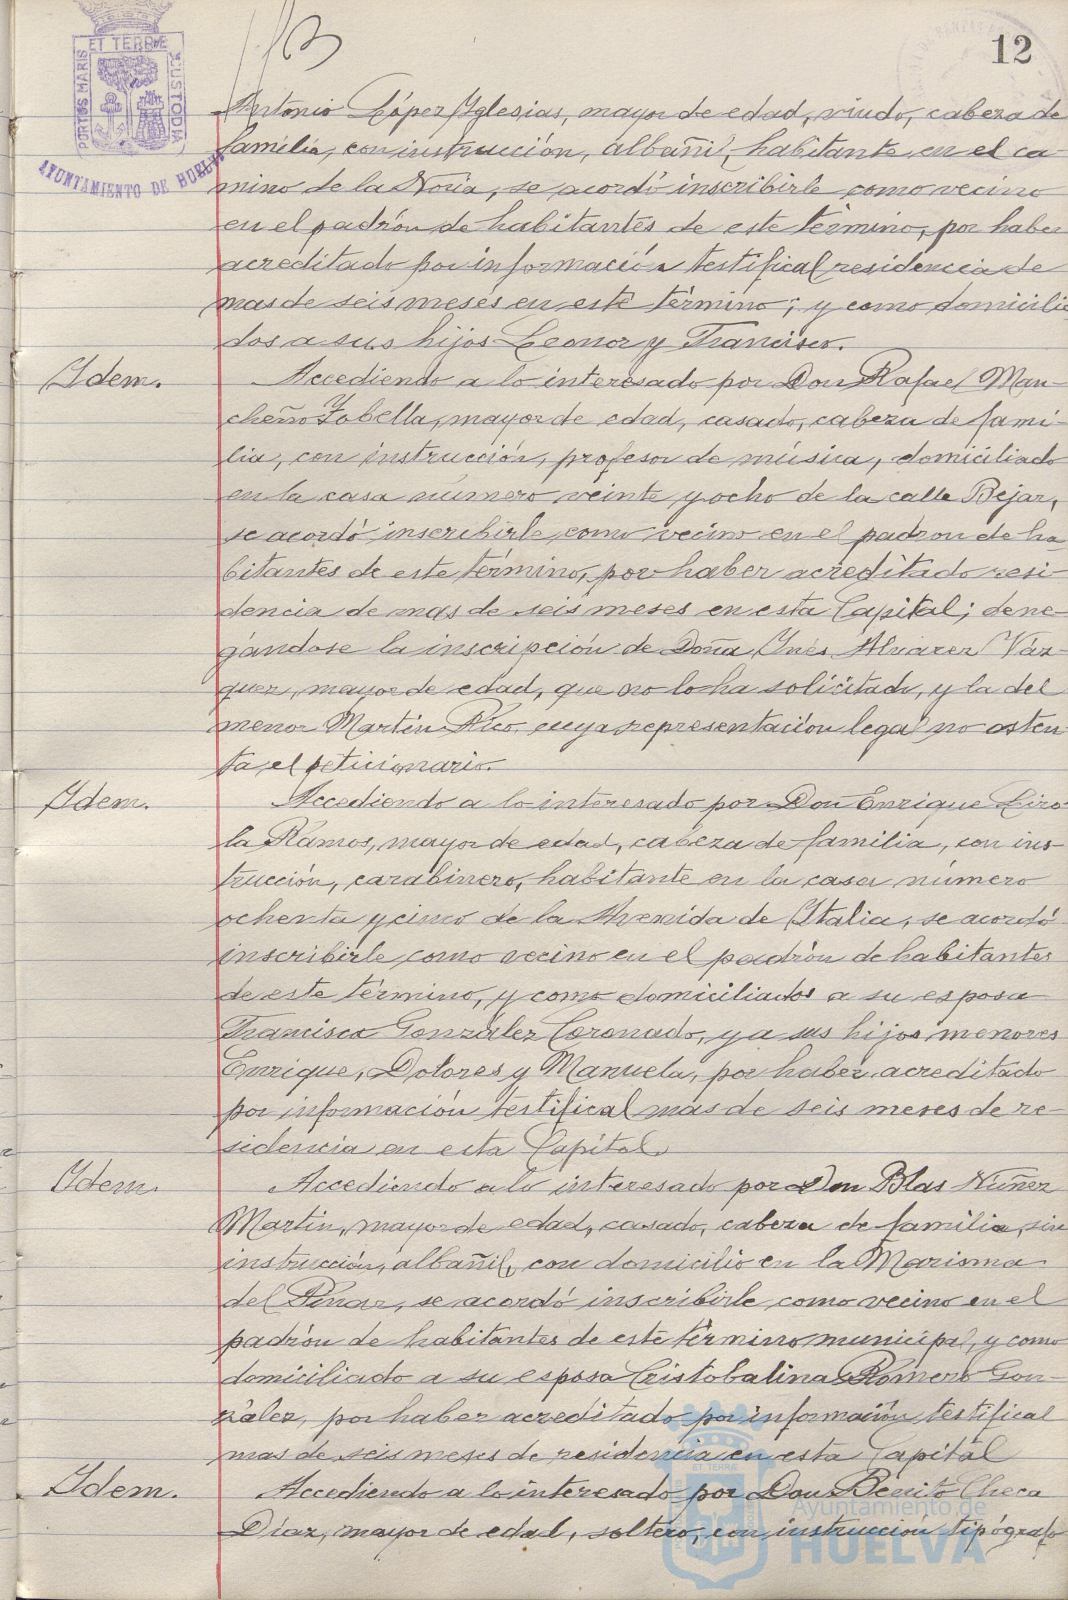 PORTUS MARIS ET TERRÆ CUSTODIA
AYUNTAMIENTO DE HUELVA
12
Antonio López Yglesias, mayor de edad, viudo, cabeza de
familia, con instrucción, albañil, habitante en el ca-
mino de la Noria, se acordó inscribirle como vecino
en el padrón de habitantes de este término, por haber
acreditado por información testifical residencia de
mas de seis meses en este término; y como domicilia
dos a sus hijos Leonor y Francisco.
Ydem. Accediendo a lo interesado por Don Rafael Man-
cheño Yobella, mayor de edad, casado, cabeza de fami-
lia, con instrucción, profesor de música, domiciliado
en la casa número veinte y ocho de la calle Bejar,
se acordó inscribirle como vecino en el padron de ha-
bitantes de este término, por haber acreditado resi-
dencia de mas de seis meses en esta Capital; dene-
gándose la inscripción de Doña Ynés Alvarez Váz-
quez, mayor de edad, que no lo ha solicitado, y la del
menor Martín Rico, cuya representación legal no osten-
ta el peticionario.
Ydem. Accediendo a lo interesado por Don Enrique Liro-
la Ramos, mayor de edad, cabeza de familia, con ins-
trucción, carabinero, habitante en la casa número
ochenta y cinco de la Avenida de Italia, se acordó
inscribirle como vecino en el padrón de habitantes
de este término, y como domiciliados a su esposa
Francisca González Coronado, y a sus hijos menores
Enrique, Dolores y Manuela, por haber acreditado
por información testifical mas de seis meses de re-
sidencia en esta Capital.
Ydem. Accediendo a lo interesado por Don Blas Núñez
Martin, mayor de edad, casado, cabeza de familia, sin
instrucción, albañil, con domicilio en la Marisma
del Pinar, se acordó inscribirle como vecino en el
padrón de habitantes de este término municipal, y como
domiciliado a su esposa Cristobalina Romero Gon-
zález, por haber acreditado por información testifical
mas de seis meses de residencia en esta Capital
Ydem. Accediendo a lo interesado por Don Benito Checa
Díaz, mayor de edad, soltero, con instrucción tipógrafo
Ayuntamiento de
HUELVA